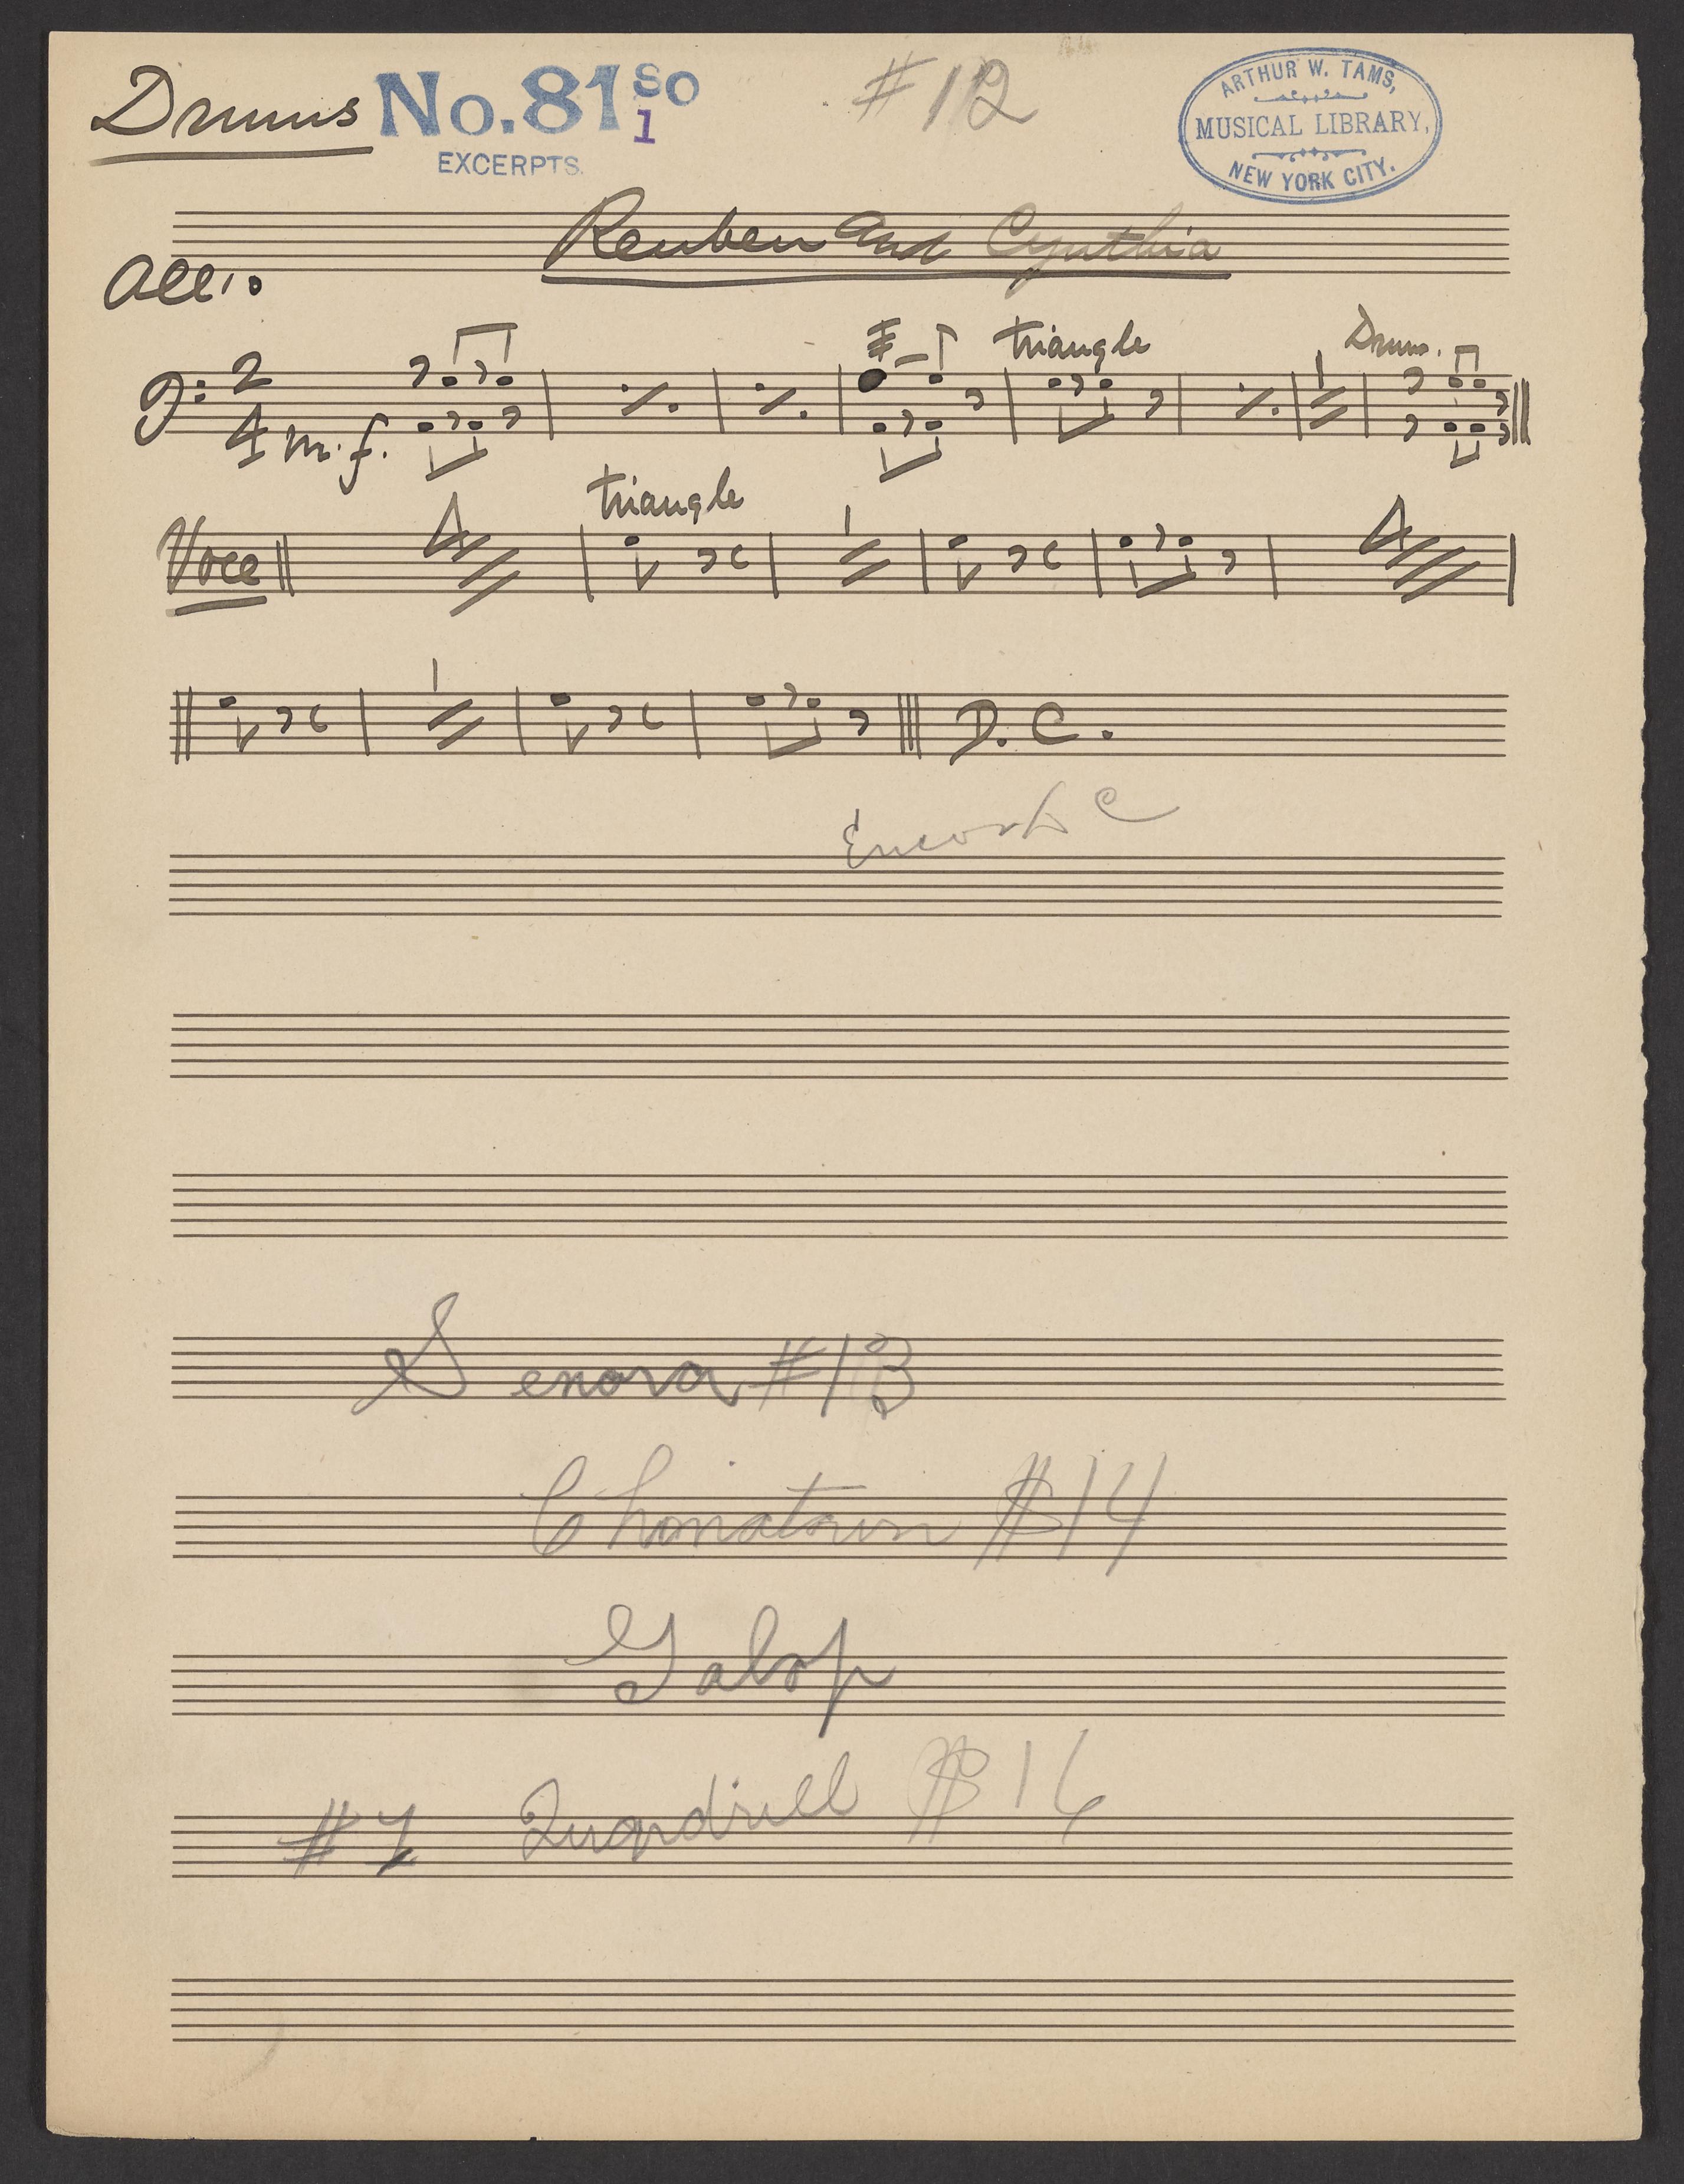 Drums No. 81 so #12
1
EXCERPTS.
ARTHUR W. TAMS,
MUSICAL LIBRARY,
NEW YORK CITY.
Reuben and Cynthia
All:o
triangle Drum.
2
4 m.f. 1
triangle
Voce 4 1 4
1
D. C.
Senora #13
Chinatown #14
Galop
#1 Quadrill #16